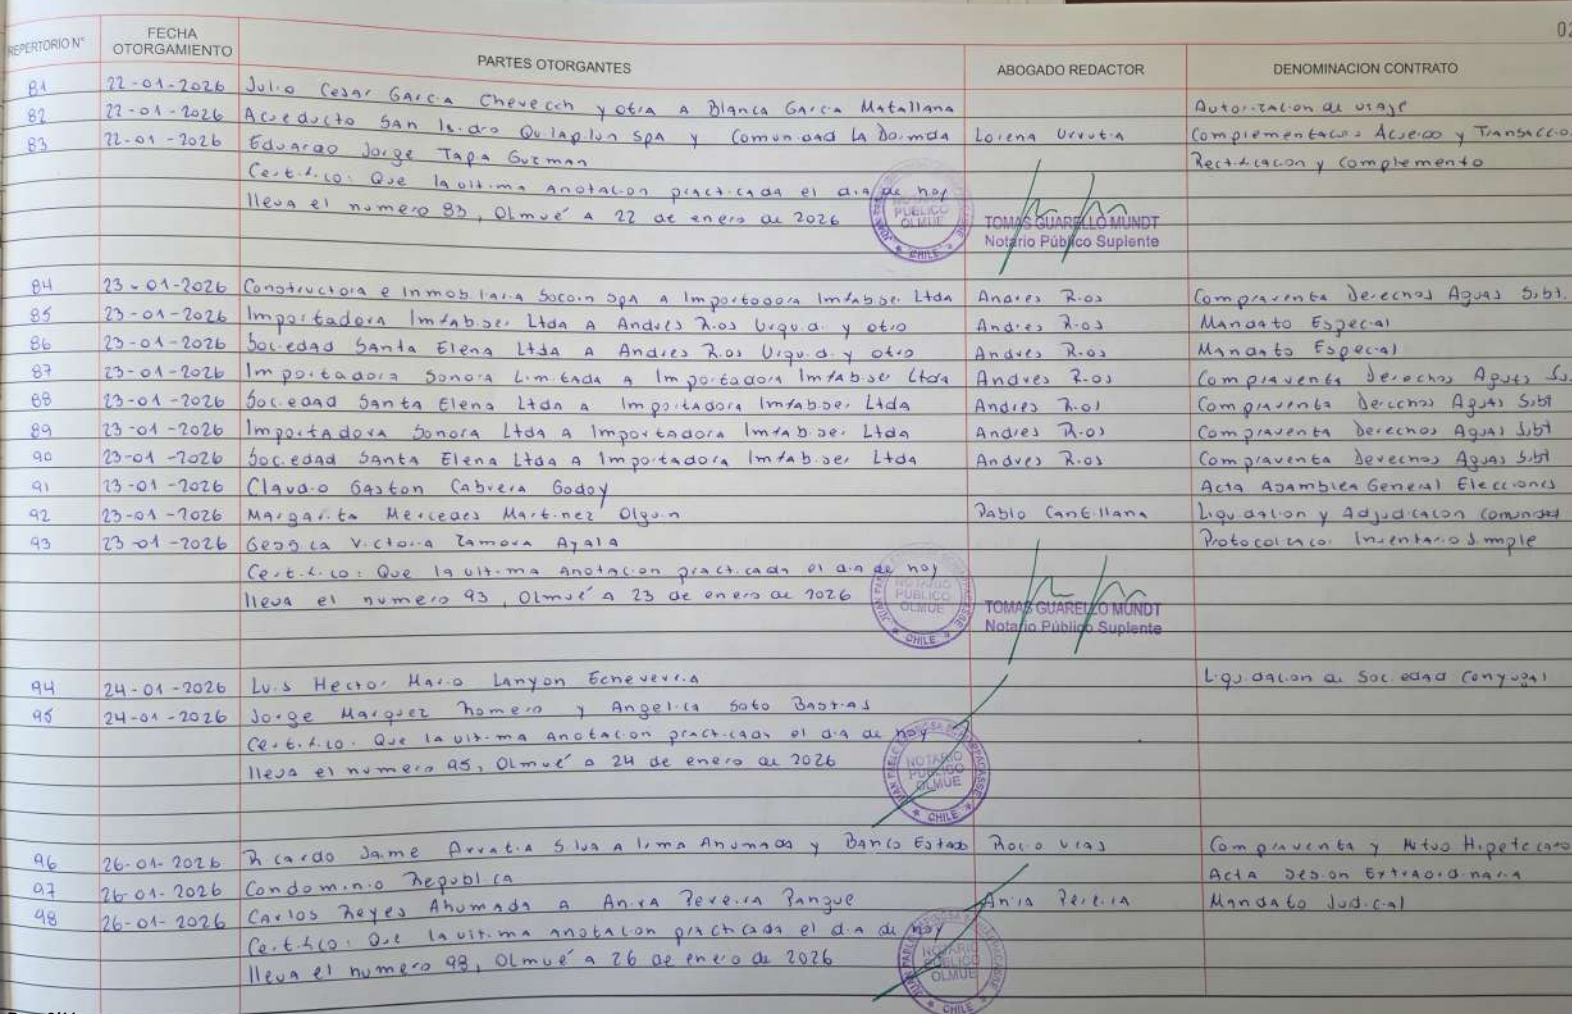 02
REPERTORIO N° FECHA OTORGAMIENTO PARTES OTORGANTES ABOGADO REDACTOR DENOMINACION CONTRATO
81 22-01-2026 Julio Cesar Garcia Chevecch y otra A Blanca Garcia Matallana Autorizacion de viaje
82 22-01-2026 Acueducto San Isidro Quilapilun SPA y Comunidad La Dormida Lorena Urrutia Complementacion Acuerdo y Transaccio
83 22-01-2026 Eduardo Jorge Tapia Guzman Rectificacion y Complemento
Certifico: Que la ultima anotacion practicada el dia de hoy
lleva el numero 83, Olmué a 22 de enero de 2026
NOTARIO PUBLICO OLMUE CHILE
TOMAS GUARELLO MUNDT
Notario Público Suplente
84 23-01-2026 Constructora e Inmobiliaria Socoin SpA a Importadora Imfabser Ltda Andres Rios Compraventa Derechos Aguas Subt.
85 23-01-2026 Importadora Imfabser Ltda A Andres Rios Urquidi y otro Andres Rios Mandato Especial
86 23-01-2026 Sociedad Santa Elena Ltda A Andres Rios Urquidi y otro Andres Rios Mandato Especial
87 23-01-2026 Importadora Sonora Limitada A Importadora Imfabser Ltda Andres Rios Compraventa Derechos Aguas Su
88 23-01-2026 Sociedad Santa Elena Ltda a Importadora Imfabser Ltda Andres Rios Compraventa Derechos Aguas Subt
89 23-01-2026 Importadora Sonora Ltda a Importadora Imfabser Ltda Andres Rios Compraventa Derechos Aguas Subt
90 23-01-2026 Sociedad Santa Elena Ltda a Importadora Imfabser Ltda Andres Rios Compraventa Derechos Aguas Subt
91 23-01-2026 Claudio Gaston Cabrera Godoy Acta Asamblea General Elecciones
92 23-01-2026 Margarita Mercedes Martinez Olguin Pablo Cantillana Liquidacion y Adjudicacion Comunidad
93 23-01-2026 Gessica Victoria Zamora Ayala Inventario Simple
Certifico: Que la ultima anotacion practicada el dia de hoy
lleva el numero 93, Olmué a 23 de enero de 2026
NOTARIO PUBLICO OLMUE JUAN PABLO CHILE
TOMAS GUARELLO MUNDT
Notario Público Suplente
94 24-01-2026 Luis Hector Mario Lanyon Echeverria Liquidacion de Sociedad Conyugal
95 24-01-2026 Jorge Marquez Romero y Angelica Soto Bastias
Certifico: Que la ultima anotacion practicada el dia de hoy
lleva el numero 95, Olmué a 24 de enero de 2026
NOTARIO PUBLICO OLMUE JUAN PABLO CHILE
96 26-01-2026 Ricardo Jaime Arratia Silva a Ahumada y Banco Estado Rocio Compraventa y Mutuo Hipotecario
97 26-01-2026 Condominio Republica Acta Sesion Extraordinaria
98 26-01-2026 Carlos Reyes Ahumada a Anira Pereira Pangue Pereira Mandato Judicial
Certifico: Que la ultima anotacion practicada el dia de hoy
lleva el numero 98, Olmué a 26 de enero de 2026
NOTARIO PUBLICO OLMUE JUAN PABLO CHILE